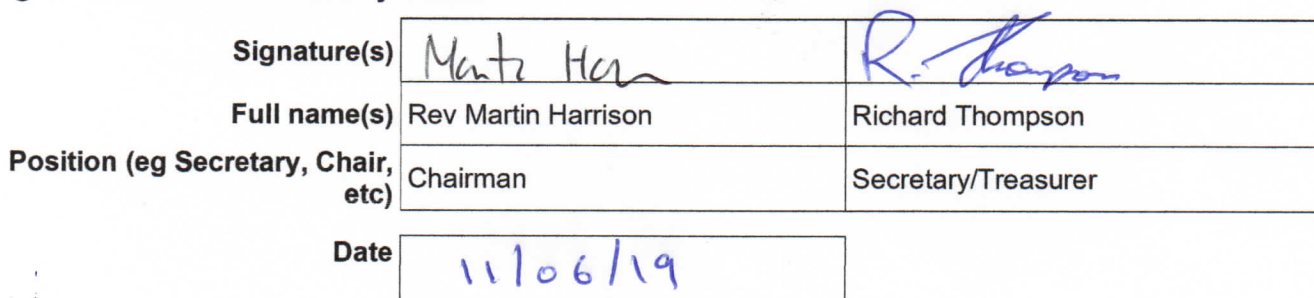 Signature(s) R. Thompson
Full name(s) Rev Martin Harrison Richard Thompson
Position (eg Secretary, Chair, etc) Chairman Secretary/Treasurer
Date 11/06/19